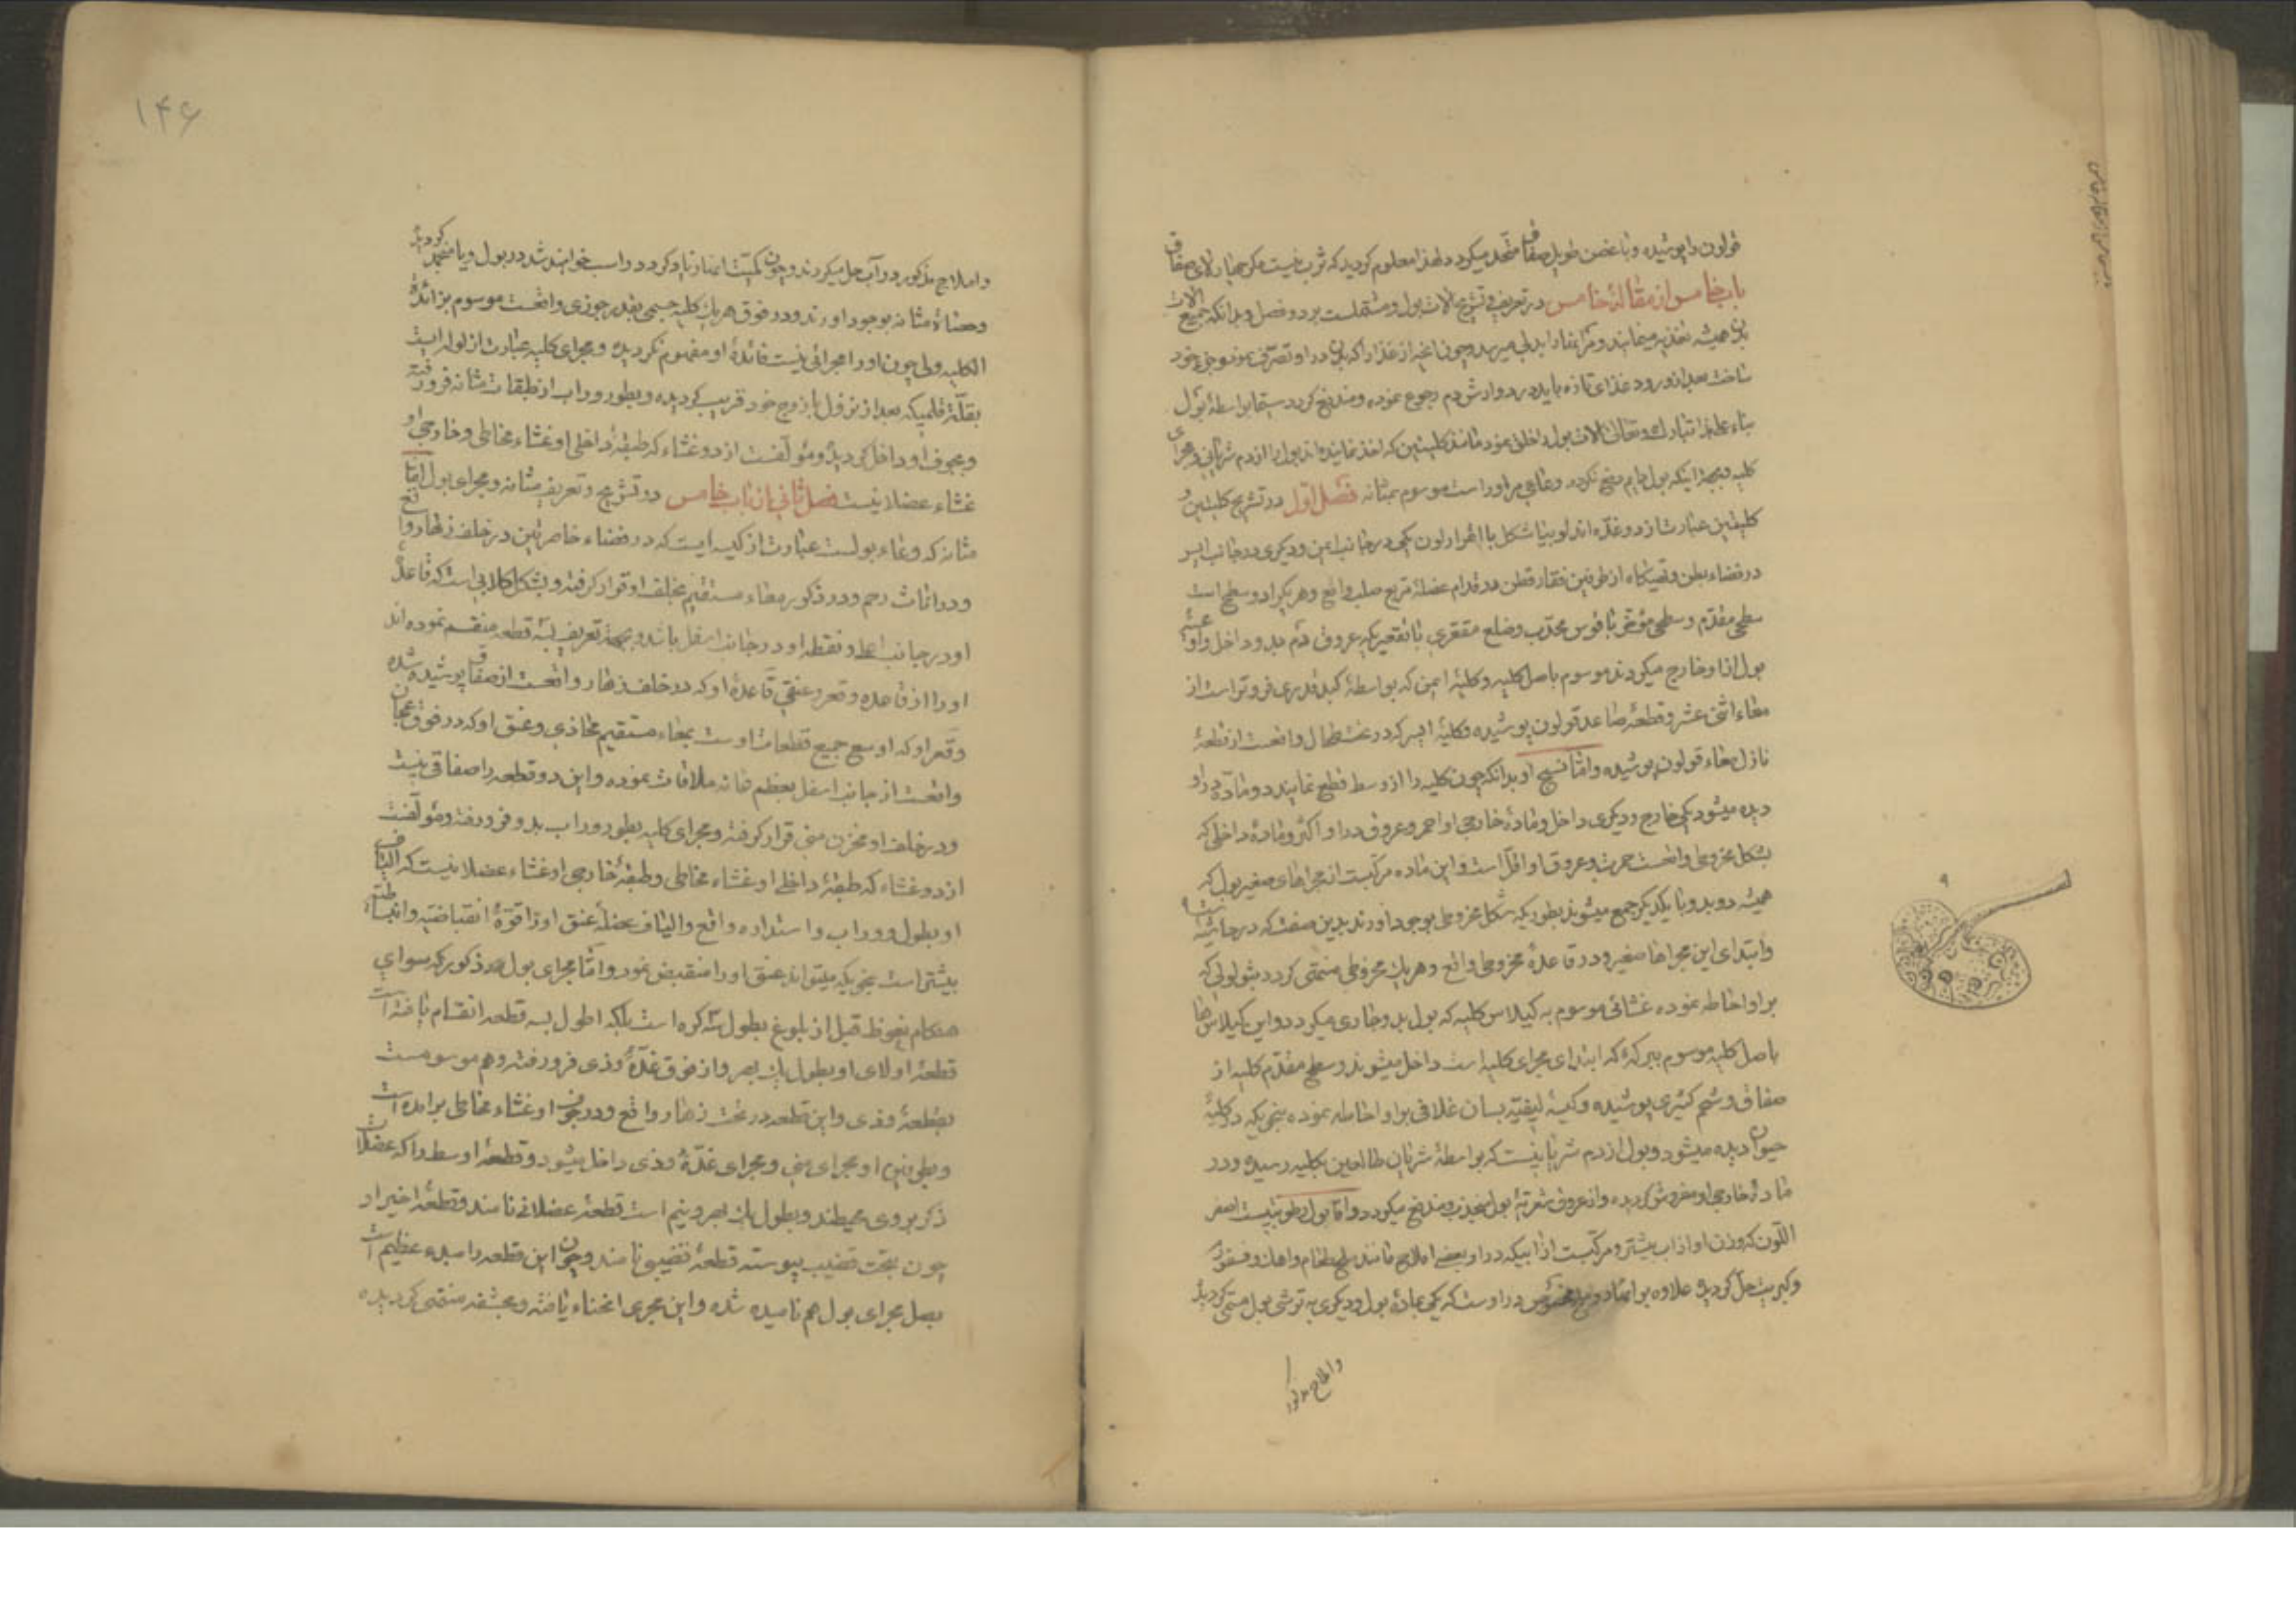 قولون را پوشیده و با غضن طویل صفاق متحد میکردد لهذا معلوم کردید که ثرب نیست مکر چهار لای صفاق
باب خامس از مقالهٔ خامس در تعریف و تشریح الات بول و مشتملست بر دو فصل و بدانکه جمیع الات
بدن همیشه تغذیه مینمایند و مر انها را بدلی میرسد و چون اغیر از غذا را که بدن در او تصرف نموده و جزو خود
ساخت بعد از ورود غذای تازه باید در دوارش دم رجوع نموده و مندفع کردد سیما بواسطهٔ بول
بناء علیهذا تبارک و تعالی الات بول را خلق نمود مانند کلیتین که اخذ نماینده اند بول را از دم شریانی و مجرای
کلیه و بجهة اینکه بول دایم منیع نکردد وعائی مر او راست موسوم بمثانه فصل اول در تشریح کلیتین و
کلیتین عبارت از دو غده اند لوبیا شکل با احمرار لون یکی در جانب ایمن و دیکری در جانب ایسر
در فضاء بطن و تهیکاه از طرفین فقار قطن در قدام عضلهٔ مربع صلب واقع و هر یکرا دو سطح است
سطحی مقدم و سطحی مؤخر با قوس محدب و ضلع مقعری با تقعیریکه عروق دم بدو داخل و اوعیهٔ
بول از او خارج میکردند موسوم باصل کلیه و کلیهٔ ایمن که بواسطهٔ کبد قدری فروتر است از
معاء اثنی عشر و قطعهٔ صاعد قولون پوشیده و کلیهٔ ایسر که در تحت طحال واقعست از قطعهٔ
نازل معاء قولون پوشیده و اما نسج او بدانکه چون کلیه را از وسط قطع نمایند دو ماده در او
دیده میشود یکی خارج و دیکری داخل و مادهٔ خارجی او احمر و عروق در او اکثر و مادهٔ داخلی که
بشکل مخروطی واقعست حمرت و عروق او اقل است و این ماده مرکبست از مجراهای صغیر بول که
همیشه دو بدو با یکدیکر جمع میشوند بطوریکه شکل مخروطی بوجود اورند بدین صفت که در حاشیه است ۹
و ابتدای این مجراها صغیر و در قاعدهٔ مخروطی واقع و هر یک مخروطی منتهی کردد بثولولی که
بر او احاطه نموده غشائی موسوم به کیلاس کلیه که بول بدو جاری میکردد و این کیلاس ها
باصل کلیه موسوم ببرکهٔ که ابتدای مجرای کلیه است داخل میشوند و سطح مقدم کلیه از
صفاق و شحم کثیری پوشیده و کیسهٔ لیفیه بسان غلافی بر او احاطه نموده بنحویکه در کلیهٔ
حیوان دیده میشود و بول از دم شریانیست که بواسطهٔ شریان طالعین بکلیه رسیده و در
مادهٔ خارجی او مفروش کردیده و از عروق شعریهٔ بول منجذب و مندفع میکردد و اما بول رطوبتیست اصفر
اللون که وزن او از اب بیشتر و مرکبست از آبیکه در او بعضی املاح مانند ملح طعام و اهک و فسفور
و کبریت حل کردیده علاوه بر انها دو در اوست که یکی بمادهٔ بول و دیکری به ترشی بول مسمی کردید
و املاح مذکور
۹
۱۴۶
و املاح مذکور در آب حل میکردند و چون کمیت انها زیاد کردد راسب خواهند شد در بول و یا منجمد کردیده
و حصاة مثانه بوجود اورند و در فوق هر یک کلیه جسمی بقدر جوزی واقعست موسوم بزائدهٔ
الکلیه ولی چون او را مجرائی نیست فائدهٔ او مفهوم نکردیده و مجرای کلیه عبارت از لوله ایست
بغلظة قلمیکه بعد از نزول با زوج خود قریب کردیده و بطور وراب از طبقات مثانه فرو رفته
و بجوف او داخل کردیده و مؤلفست از دو غشاء که طبقهٔ داخلی او غشاء مخاطی و خارجی او
غشاء عضلانیست فصل ثانی از باب خامس در تشریح و تعریف مثانه و مجرای بول اما
مثانه که وعاء بولست عبارت از کیسه ایست که در فضاء خاصرتین در خلف زهار واقع
و در اناث رحم و در ذکور معاء مستقیم بخلف او قرار کرفته و بشکل کلابی است که قاعدهٔ
او در جانب اعلا و نقطه او در جانب اسفل باشد و بجهة تعریف بسه قطعه منقسم نموده اند
او را از قاعده و قعر و عنق قاعدهٔ او که در خلف زهار واقعست از صفاق پوشیده شده
و قعر او که اوسع جمیع قطعات اوست بمعاء مستقیم محاذی و عنق او که در فوق عجان
واقعست از جانب اسفل بعظم عانه ملاقات نموده و این دو قطعه را صفاقی نیست
و در خلف او مخزن منی قرار کرفته و مجرای کلیه بطور وراب بدو فرو رفته و مؤلفست
از دو غشاء که طبقهٔ داخلی او غشاء مخاطی و طبقهٔ خارجی او غشاء عضلانیست که الیاف
او بطول و وراب و استداره واقع و الیاف عضلهٔ عنق او را قوهٔ انقباضیه و انبساطیه
بیشتر است بنحویکه میتواند عنق او را منقبض نمود و اما مجرای بول در ذکور که سوای
هنکام نعوظ قبل از بلوغ بطول سه کره است بلکه اطول بسه قطعه انقسام یافته است
قطعهٔ اولای او بطول یک بهر و از فوق غدهٔ وذی فرو رفته و هم موسومست
بقطعهٔ وذی و این قطعه در تحت زهار واقع و در جوف او غشاء مخاطی بر امده است
و بطرفین او مجرای منی و مجرای غدهٔ وذی داخل میشود و قطعهٔ اوسط را که عضلات
ذکر بروی محیطند و بطول یک بهر و نیم است قطعهٔ عضلانی نامند و قطعهٔ اخیر او را
چون بتحت قضیب پیوسته قطعهٔ قضیبی نامند و چون این قطعه را مبدء عظیم است
بصل مجرای بول هم نامیده شده و این مجری انحناء یافته و بحشفه منتهی کردیده